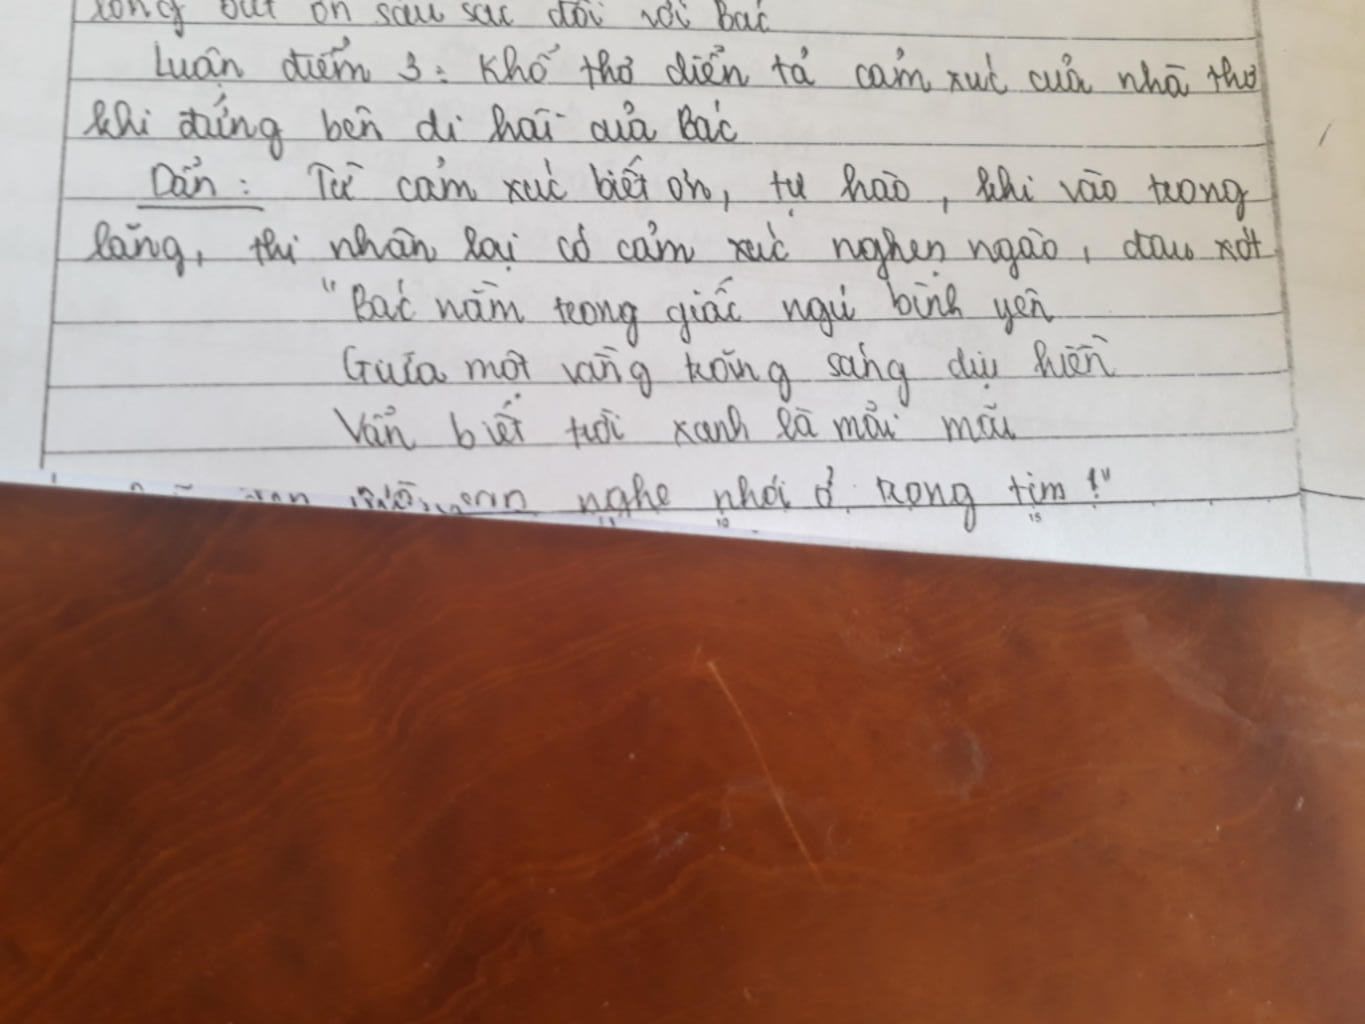 lòng biết ơn sâu sắc đối với Bác
Luận điểm 3: Khổ thơ diển tả cảm xúc của nhà thơ
khi đứng bên di hài của Bác
Dẩn: Từ cảm xúc biết ơn, tự hào, khi vào trong
lăng, thi nhân lại có cảm xúc nghẹn ngào, đau xót
"Bác nằm trong giấc ngủ bình yên
Giữa một vầng trăng sáng dịu hiền
Vẩn biết trời xanh là mải mãi
nghe nhói ở trong tim!"